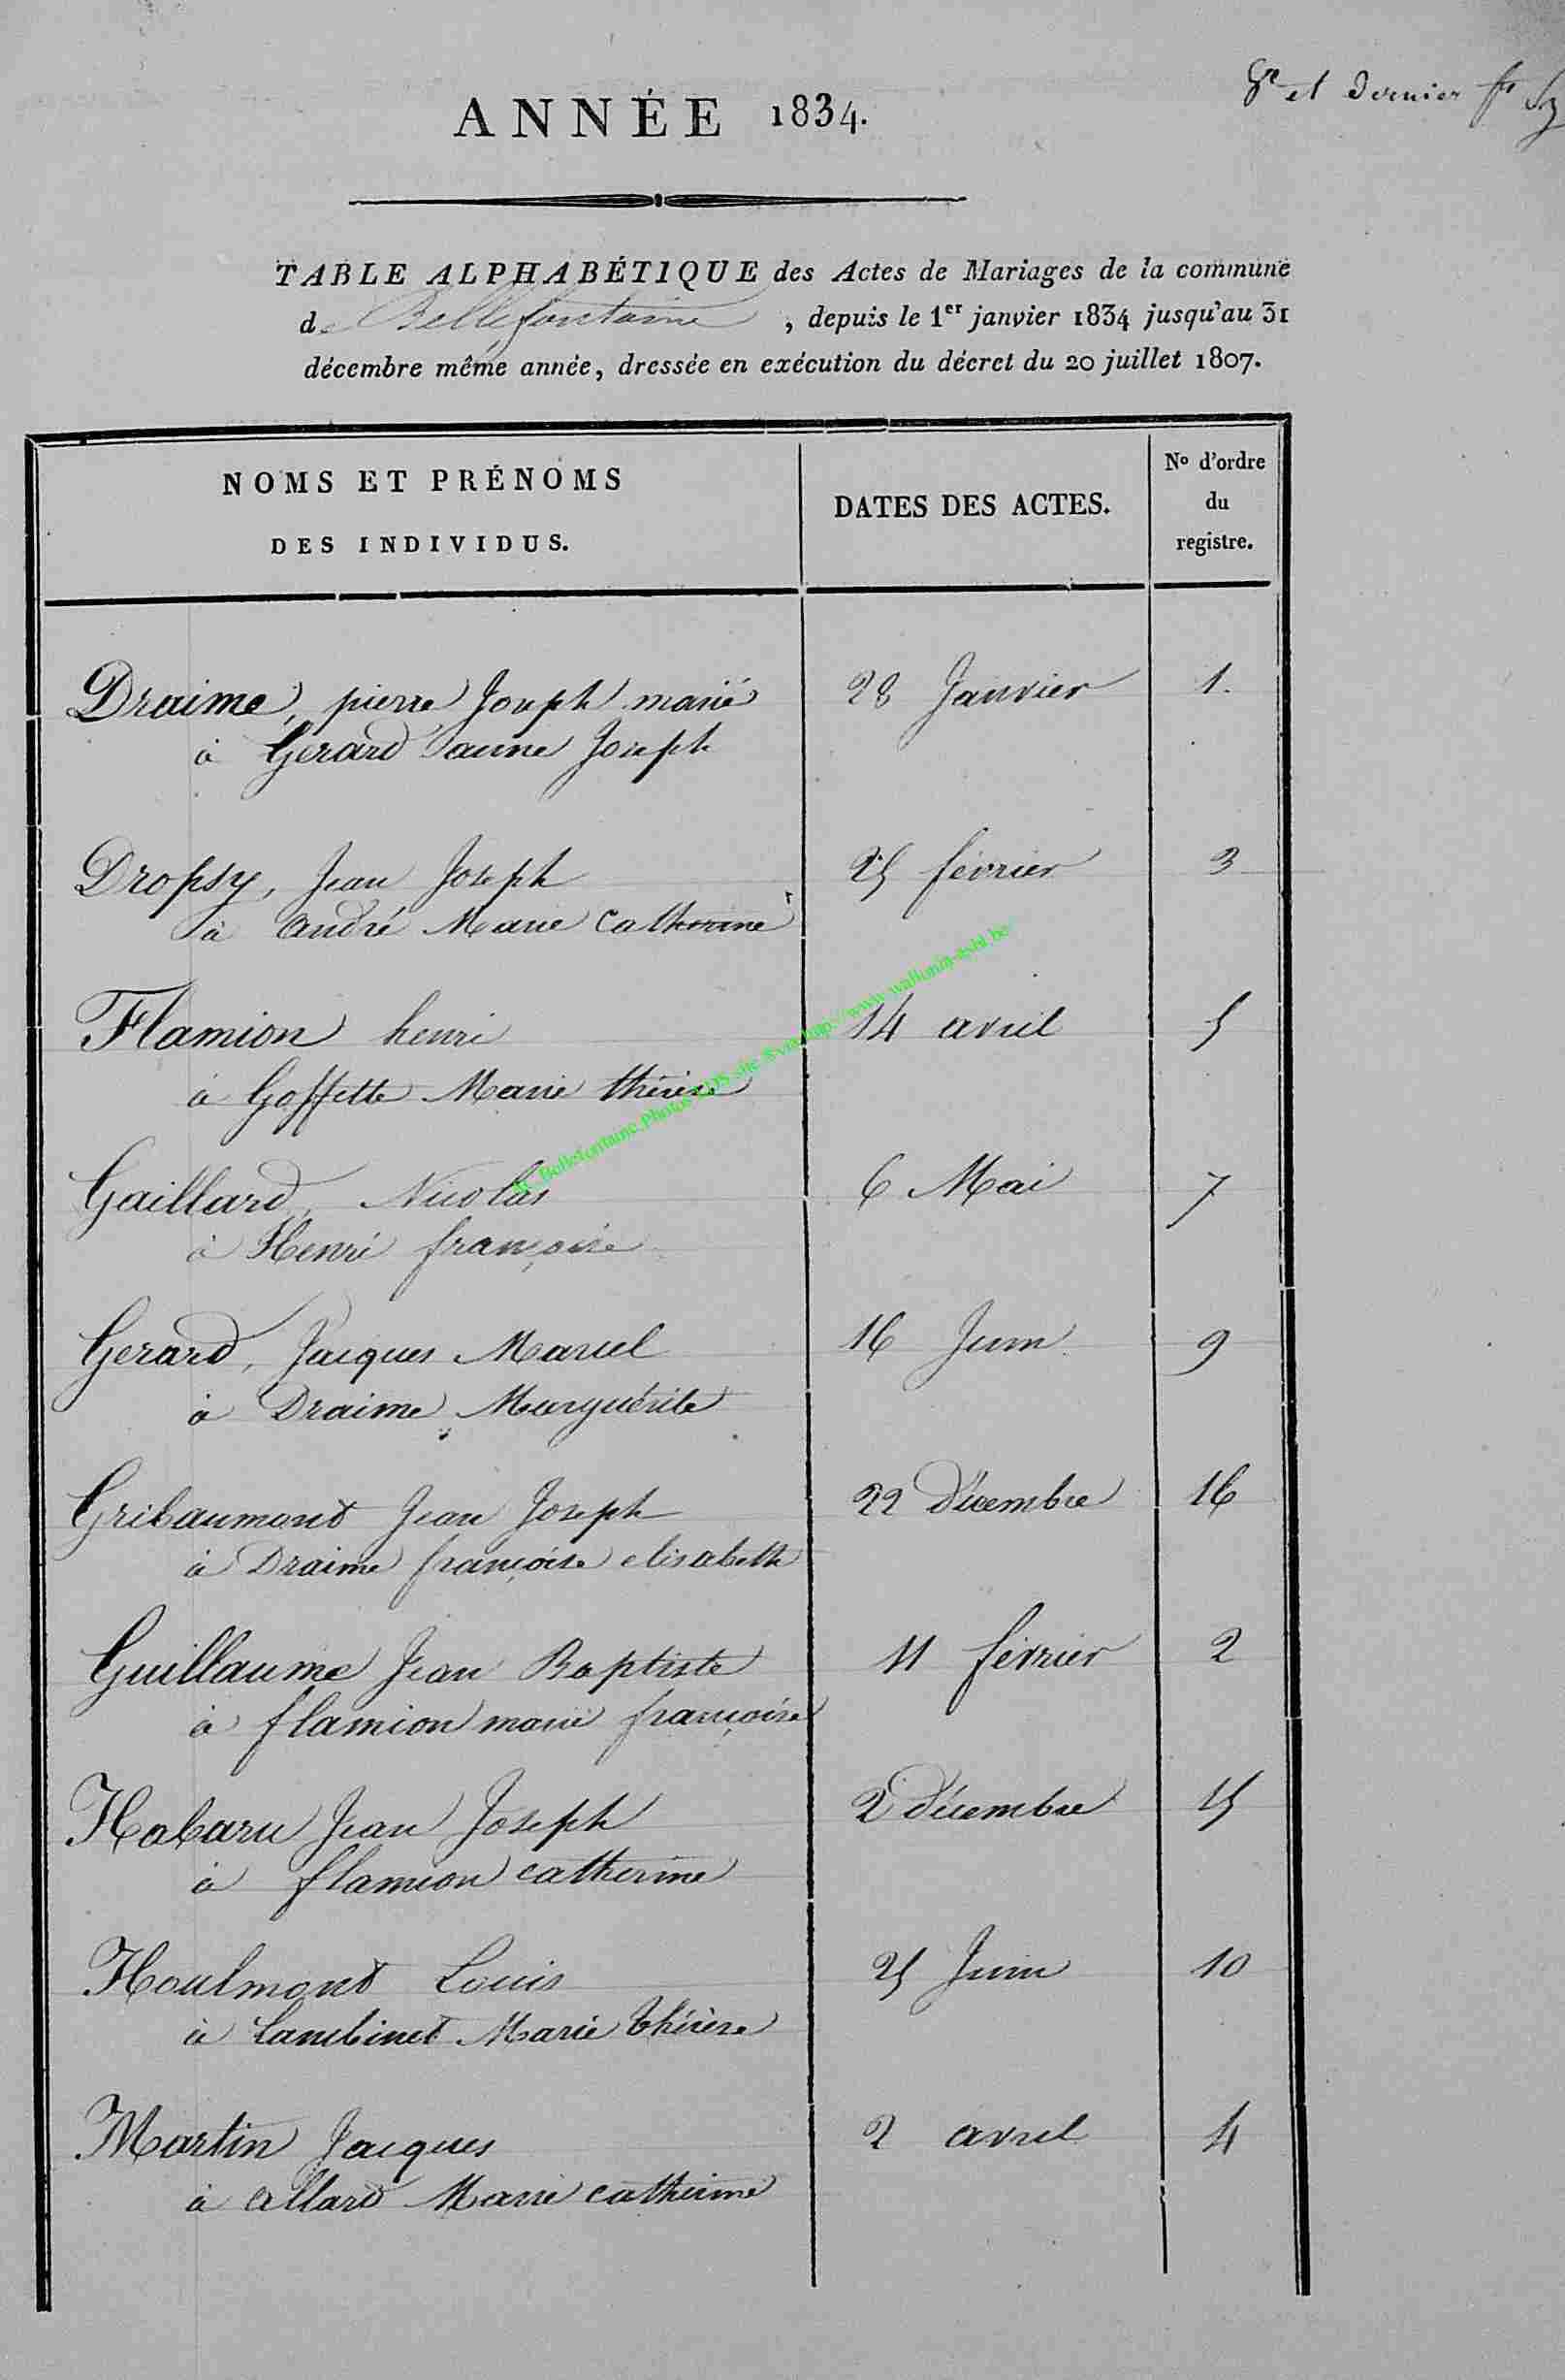 8e et dernier
ANNÉE 1834.
TABLE ALPHABÉTIQUE des Actes de Mariages de la commune
de Bellefontaine, depuis le 1er janvier 1834 jusqu'au 31
décembre même année, dressée en exécution du décret du 20 juillet 1807.
NOMS ET PRÉNOMS
DES INDIVIDUS.
DATES DES ACTES.
No d'ordre
du
registre.
Draime, pierre Joseph marié 28 Janvier 1.
à Gerard anne Joseph
Dropsy, Jean Joseph 25 février 3
à André Marie Catherine
Flamion henri 14 avril 5
à Goffette Marie thérèse
Gaillard, Nicolas 6 Mai 7
à Henri françoise
Gerard, Jacques Marcel 16 Juin 9
à Draime Marguérite
Gribaumont Jean Joseph 22 décembre 16
à Draime françoise elisabeth
Guillaume Jean Baptiste 11 février 2
à flamion marie françoise
Habaru Jean Joseph 2 décembre 15
à flamion catherine
Houlmont Louis 25 Juin 10
à Lambinet Marie thérèse
Martin Jacques 2 avril 4
à allard Marie catherine
Bellefontaine Photos http://www.wallonia-asbl.be